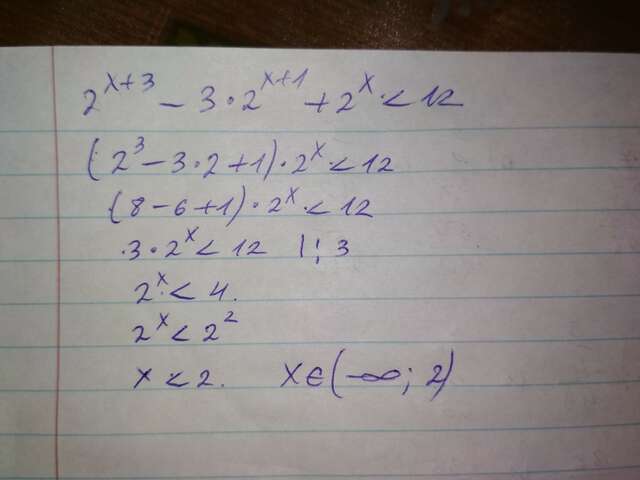 2^{x+3} - 3 · 2^{x+1} + 2^x < 12
(2^3 - 3 · 2 + 1) · 2^x < 12
(8 - 6 + 1) · 2^x < 12
3 · 2^x < 12 | : 3
2^x < 4.
2^x < 2^2
x < 2. x ∈ (-∞; 2)